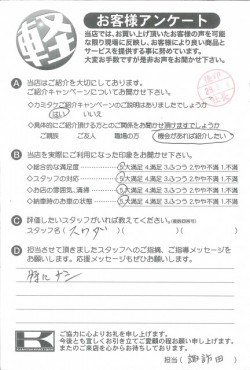 軽
お客様アンケート
当店では、お買い上げ頂いたお客様の声を可能
な限り現場に反映し、お客様により良い商品と
サービスを提供する事に努めています。
大変お手数ですが是非お声をお聞かせ下さい。
A 当店はご紹介を大切にしております。
ご紹介キャンペーンについてお聞かせ下さい。
◇カミタケご紹介キャンペーンのご説明はありましたでしょうか
はい いいえ
◇具体的にご紹介頂ける方との関係をお聞かせ頂けますでしょうか
ご親族 ご友人 職場の方 機会があれば紹介したい
B 当店を実際にご利用になった印象をお聞かせ下さい。
◇総合的な満足度 5.大満足 4.満足 3.ふつう 2.やや不満 1.不満
◇スタッフの対応 5.大満足 4.満足 3.ふつう 2.やや不満 1.不満
◇お店の雰囲気、清掃 5.大満足 4.満足 3.ふつう 2.やや不満 1.不満
◇納車時のお車の状態 5.大満足 4.満足 3.ふつう 2.やや不満 1.不満
C 評価したいスタッフがいれば教えてください。(複数回答可)
スタッフ名( スワダ )( )( )
D 担当させて頂きましたスタッフへのご指摘、ご指導メッセージを
お願いします。応援メッセージもぜひお願いします。
特にナシ
K
ご協力に心よりお礼を申し上げます。
今後とも宜しくお引き立てご愛顧の程お願い申し上げます。
またのご来店を心からお待ちしております。
担当( 諏訪田 )